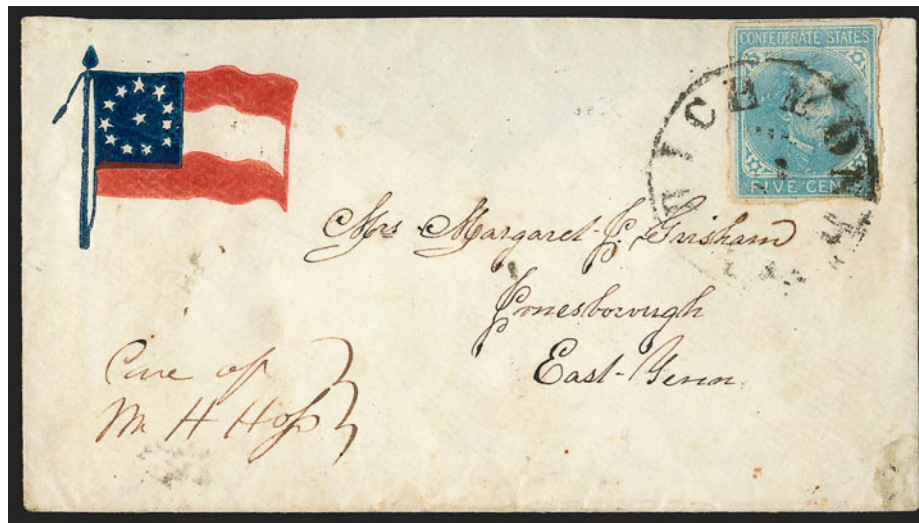 CONFEDERATE STATES
FIVE CENTS
RICHMOND
Mrs Margaret J. Grisham
Jonesborough
East-Tenn
Care of
M H Hoss